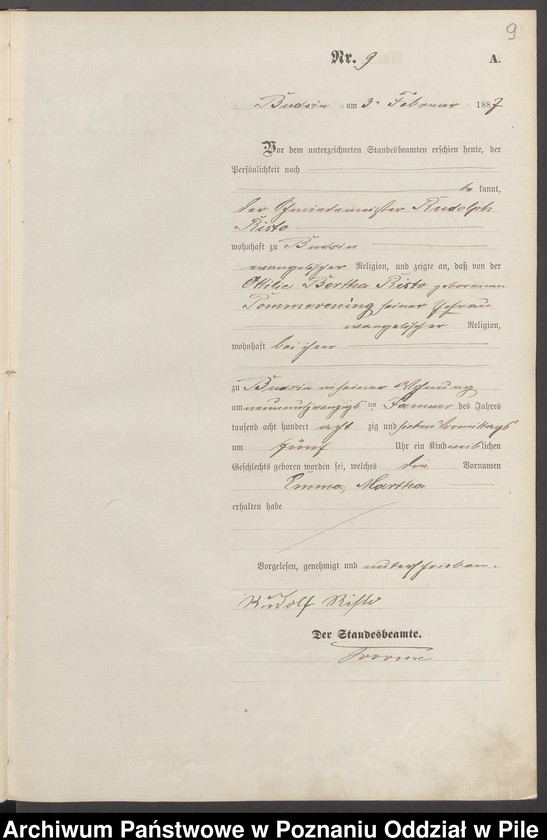 9
Nr. 9 A.
Budsin am 3. Februar 1887
Vor dem unterzeichneten Standesbeamten erschien heute, der
Persönlichkeit nach
be kannt,
der Schmiedemeister Rudolph
Risto
wohnhaft zu Budsin
evangelischer Religion, und zeigte an, daß von der
Ottilie Bertha Risto geborenen
Pommerening seiner Ehefrau
evangelischer Religion,
wohnhaft bei ihm
zu Budsin in seiner Wohnung
am neunundzwanzigs ten Januar des Jahres
tausend acht hundert acht zig und sieben Vormittags
um fünf Uhr ein Kind weiblichen
Geschlechts geboren worden sei, welches die Vornamen
Emma, Martha
erhalten habe
Vorgelesen, genehmigt und unterschrieben.
Rudolf Risto
Der Standesbeamte.
Archiwum Państwowe w Poznaniu Oddział w Pile